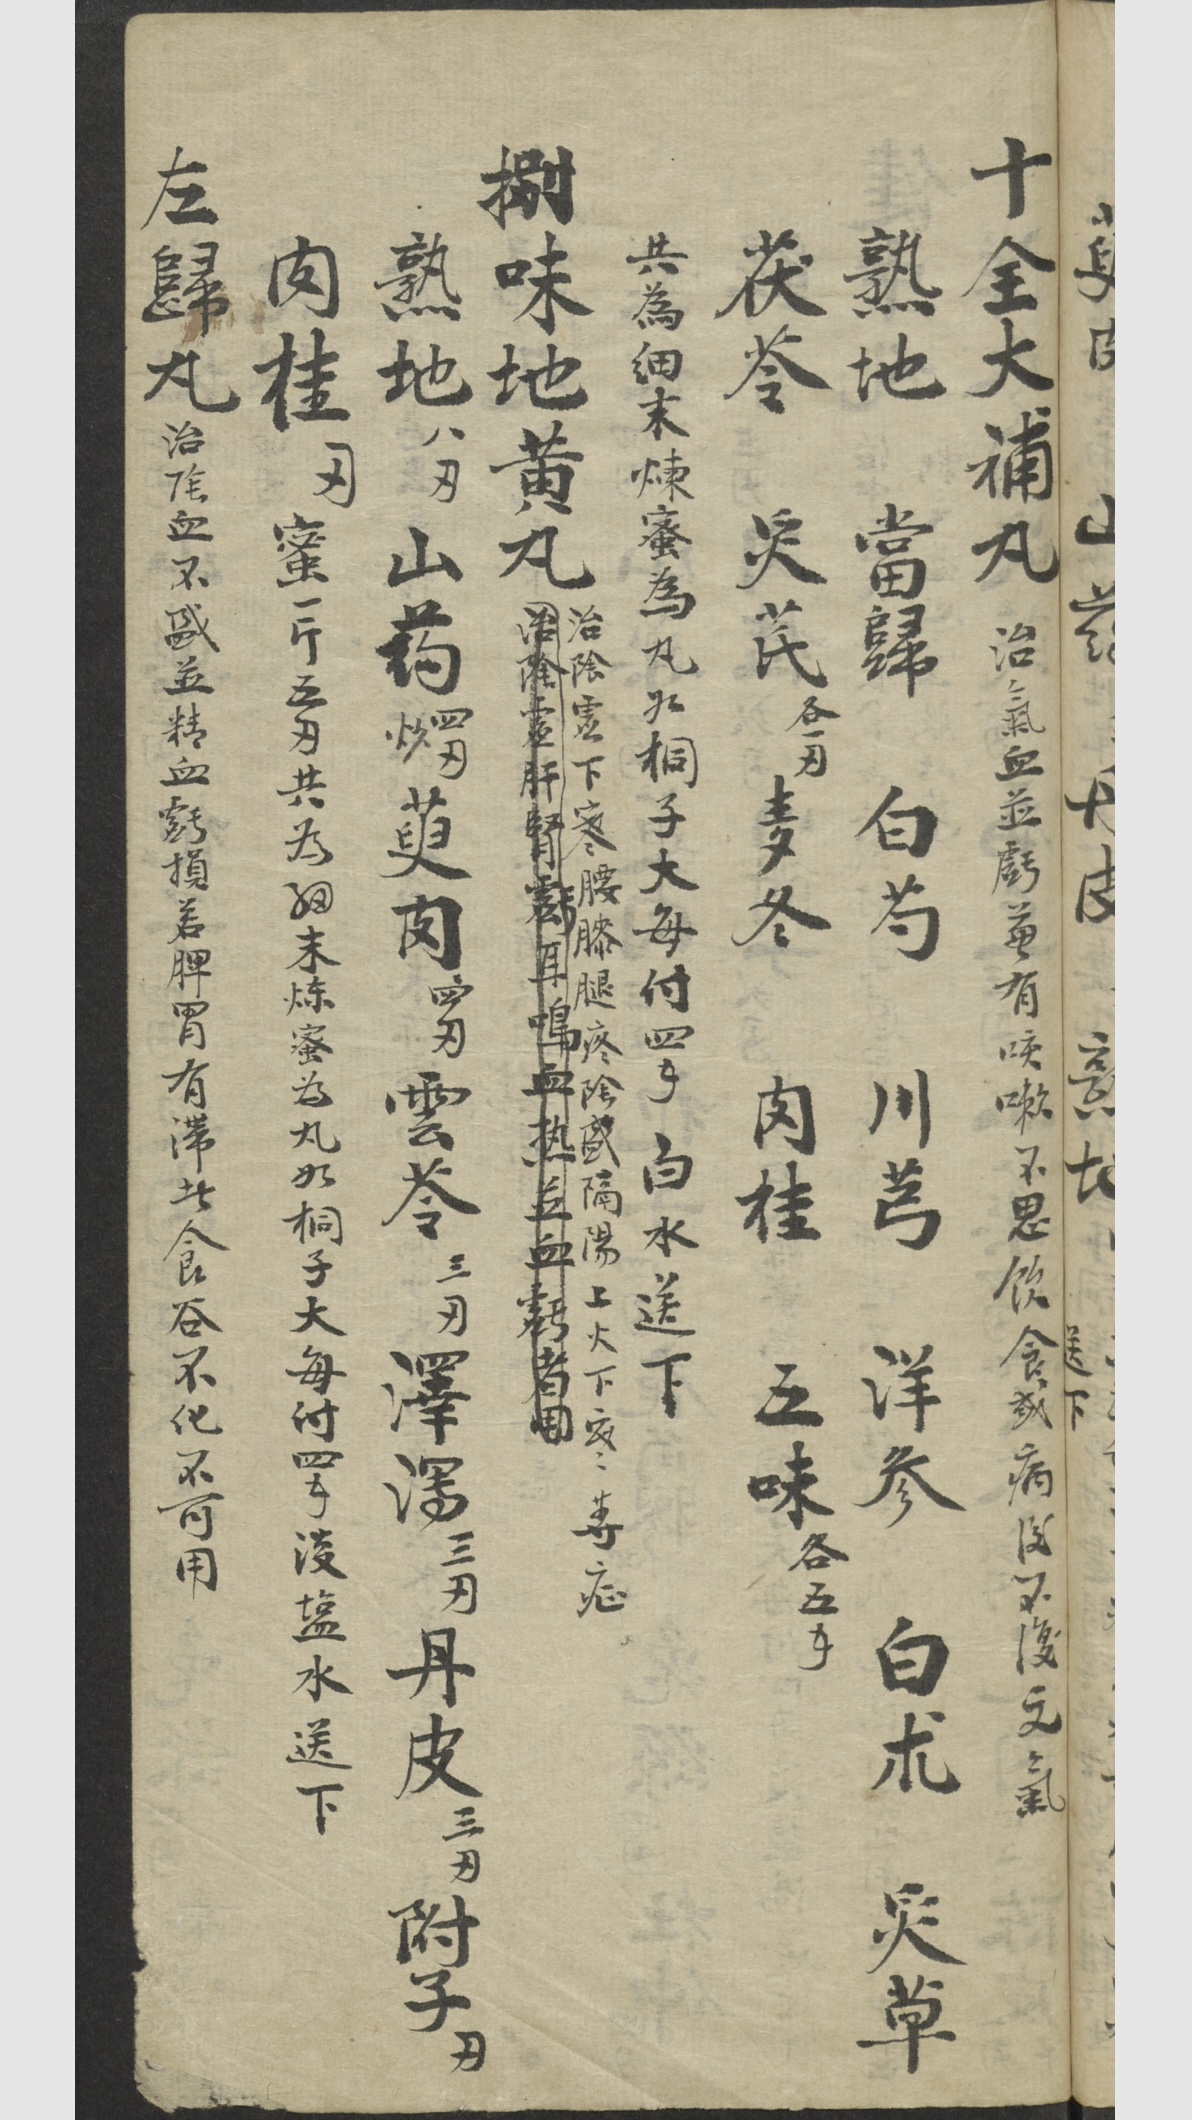 十全大補丸 治氣血並虧並有咳嗽不思飲食或病後不復元氣
熟地 當歸 白芍 川芎 洋參 白朮 炙草
茯苓 炙芪各一刃 麦冬 肉桂 五味各五手
共為細末煉蜜為丸如桐子大每付四手白水送下
捌味地黃丸 治陰虛下寒腰膝腿疼陰盛隔陽上火下寒之毒症
治陰虛肝腎虧耳鳴血热並血虧者用
熟地八刃 山药四刃炒 萸肉四刃 雲苓三刃 澤瀉三刃 丹皮三刃 附子刃
肉桂刃 蜜一斤五刃共為細末炼蜜為丸如桐子大每付四手淡塩水送下
左歸丸 治陰血不盛並精血虧損若脾胃有滯此食谷不化不可用
萸肉 山药 丹皮 熟地
送下